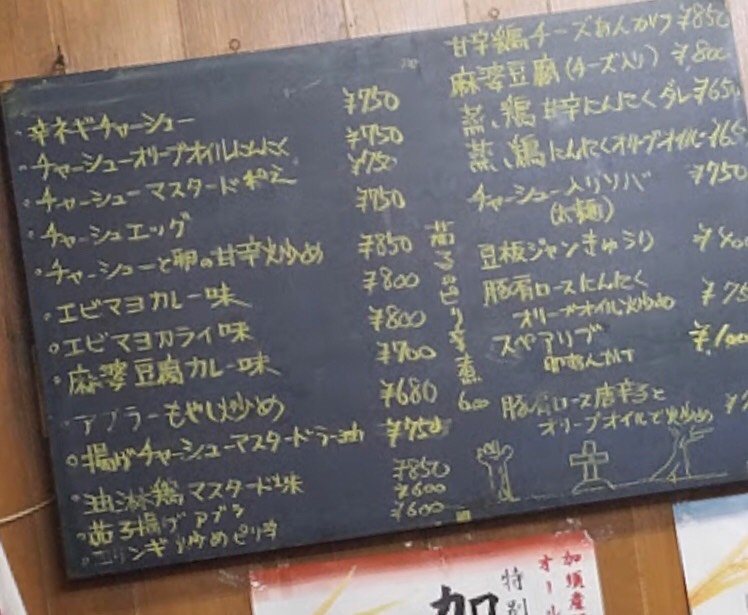 ・辛ネギチャーシュー ¥750
・チャーシューオリーブオイルにんにく ¥750
・チャーシューマスタード和え ¥750
・チャーシュエッグ ¥750
・チャーシューと卵の甘辛炒め ¥850
・エビマヨカレー味 ¥800
・エビマヨカライ味 ¥800
・麻婆豆腐カレー味 ¥700
アブラーもやし炒め ¥680
・揚げチャーシューマスタードラー油 ¥750
・油淋鶏マスタード味 ¥850
・茄子揚げアブラ ¥600
・エリンギ炒めピリ辛 ¥600
茄子のピリ辛煮 600
甘辛鶏チーズあんかけ ¥850
麻婆豆腐(チーズ入り) ¥800
蒸し鶏甘辛にんにくダレ ¥650
蒸し鶏にんにくオリーブオイル
チャーシュー入りソバ ¥750
(太麺)
豆板ジャンきゅうり
豚肩ロースにんにく
オリーブオイル炒め
スペアリブ
豚肩ロース唐辛子と
オリーブオイルで炒め
加須産
オー
特別
加